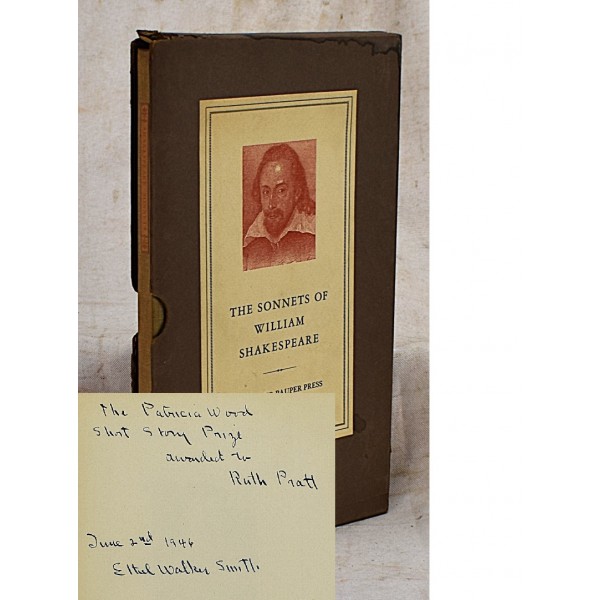 THE SONNETS OF
WILLIAM
SHAKESPEARE
PAUPER PRESS
The Patricia Wood
Short Story Prize
awarded to
Ruth Pratt
June 2nd 1946
Ethel Walker Smith.